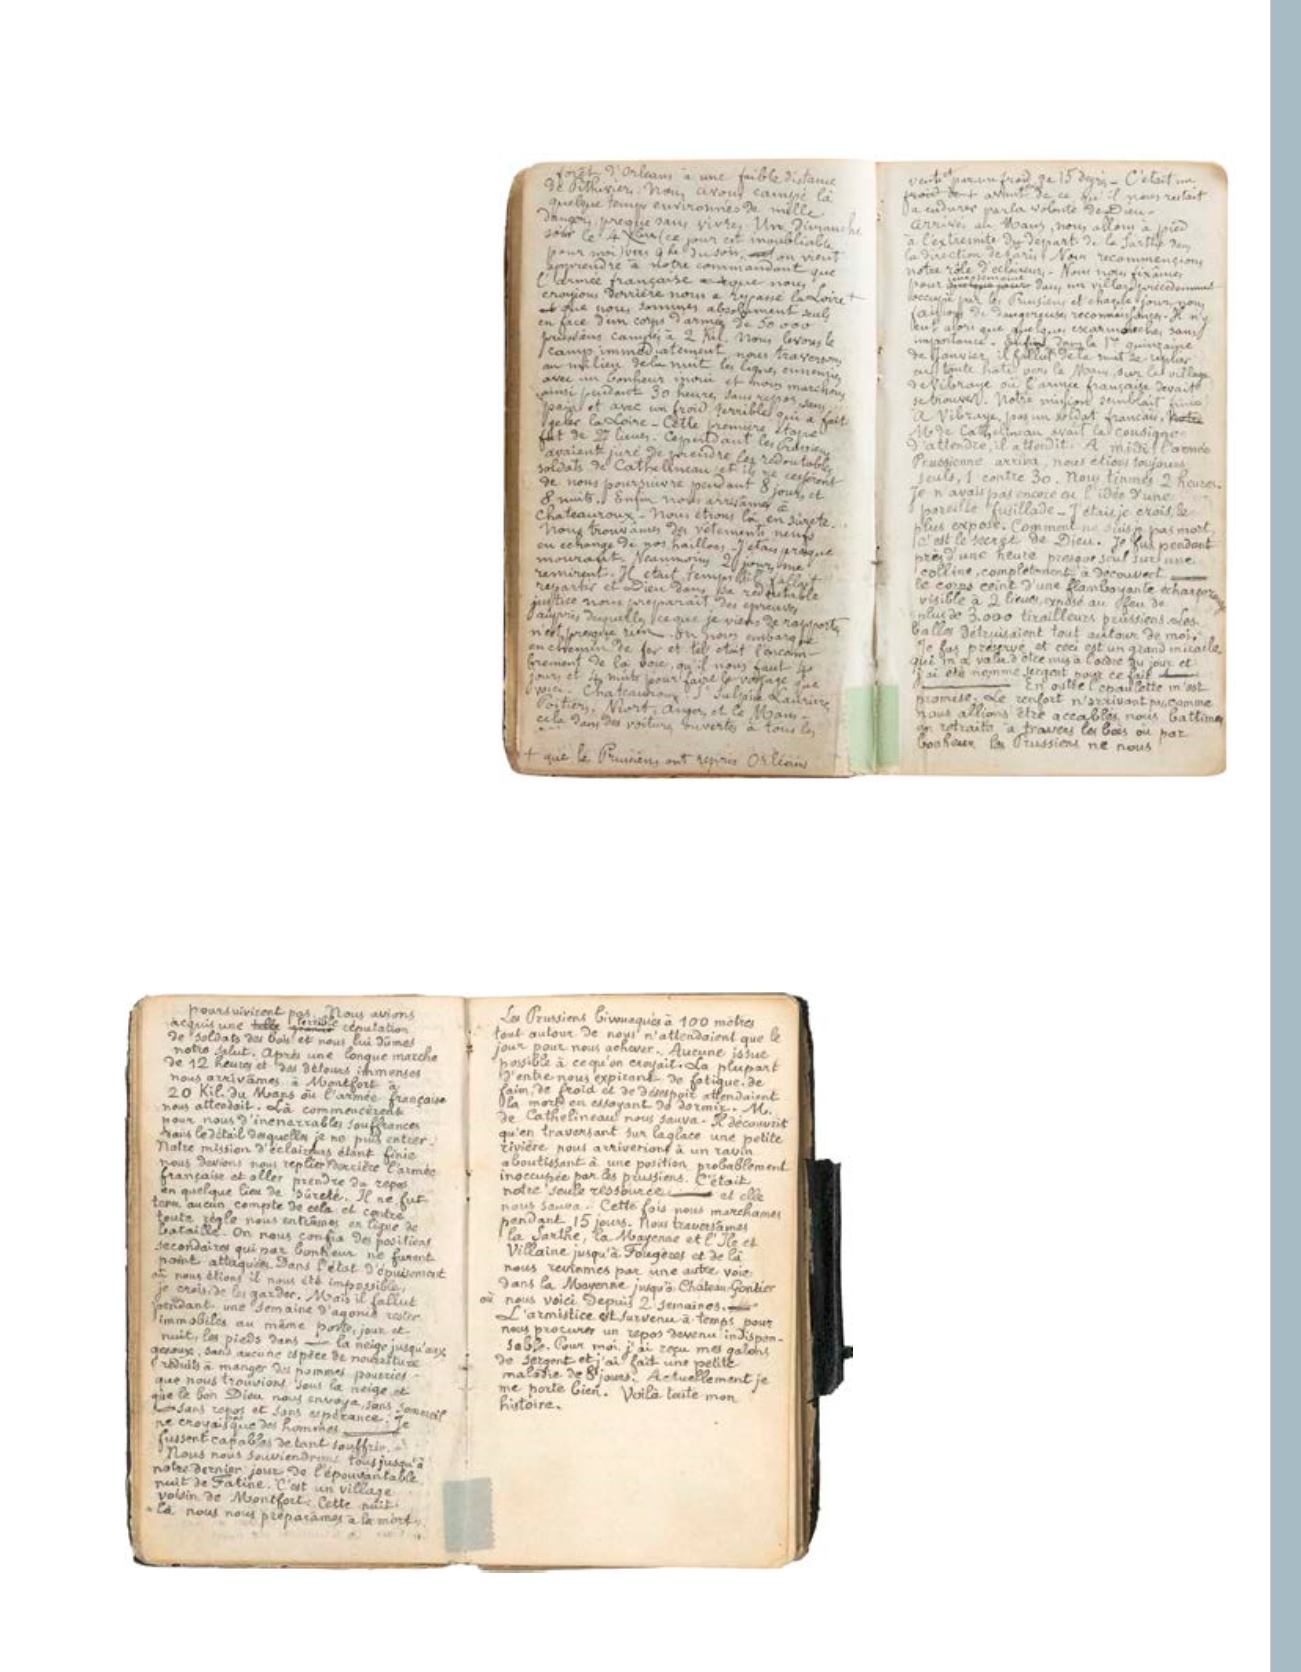 forêt d'Orléans à une faible distance
de Pithiviers. Nous avons campé là
quelque temps environnés de mille
dangers, presque sans vivres. Un Dimanche
soir le 4 (ce jour est inoubliable
pour moi) vers 9 h. du soir, on vient
apprendre à notre commandant que
l'armée française que nous
croyions derrière nous a repassé la Loire +
et que nous sommes absolument seuls
en face d'un corps d'armée de 50 000
prussiens campés à 2 Kil. Nous levons le
camp immédiatement, nous traversons
au milieu de la nuit les lignes ennemies
avec un bonheur inouï et nous marchons
ainsi pendant 30 heures sans repos, sans
pain et avec un froid terrible qui a fait
geler la Loire – Cette première étape
fut de 27 lieues. Cependant les Prussiens
avaient juré de prendre les redoutables
soldats de Cathelineau et ils ne cessèrent
de nous poursuivre pendant 8 jours et
8 nuits. Enfin nous arrivâmes à
Chateauroux – Nous étions là en sûreté.
Nous trouvâmes des vêtements neufs
en échange de nos haillons – J'étais presque
mourant. Néanmoins 2 jours me
remirent. Il était temps. Il fallut
repartir et Dieu dans sa redoutable
justice nous préparait des épreuves
auprès desquelles ce que je viens de rapporter
n'est presque rien. On nous embarque
en chemin de fer et tel était l'encom-
brement de la voie, qu'il nous faut 4
jours et 4 nuits pour faire le voyage que
voici. Chateauroux, St Sulpice Laurière
Poitiers, Niort, Angers et le Mans –
cela dans des voitures ouvertes à tous les
+ que les Prussiens ont repris Orléans
vents et par un froid de 15 degrés – C'était un
avant de ce qu'il nous restait
à endurer par la volonté de Dieu –
Arrivés au Mans, nous allons à pied
à l'extrémité du départ de la Sarthe dans
la direction de Paris. Nous recommençons
notre rôle d'éclaireurs. Nous nous fixâmes
pour une semaine dans un village précédemment
occupé par les Prussiens et chaque jour nous
faisions de dangereuses reconnaissances. Il n'y
eut alors que quelques escarmouches sans
importance. Enfin dans la 1re quinzaine
de Janvier, il fallut de la nuit se replier
en toute hâte vers le Mans, sur le village
de Vibraye où l'armée française devait
se trouver. Notre mission semblait finie
A Vibraye, pas un soldat français.
M. de Cathelineau avait la consigne
d'attendre, il attendit. A midi l'armée
Prussienne arriva, nous étions toujours
seuls, 1 contre 30. Nous tinmes 2 heures.
Je n'avais pas encore eu l'idée d'une
pareille fusillade – J'étais je crois, le
plus exposé. Comment ne suis-je pas mort,
c'est le secret de Dieu. Je fus pendant
près d'une heure presque seul sur une
colline, complètement à découvert
le corps ceint d'une flamboyante écharpe
visible à 2 lieues, exposé au feu de
plus de 3.000 tirailleurs prussiens. Les
balles détruisaient tout autour de moi.
Je fus préservé et ceci est un grand miracle
qui m'a valu d'être mis à l'ordre du jour et
j'ai été nommé sergent pour ce fait
En outre l'épaulette m'est
promise. Le renfort n'arrivant pas, comme
nous allions être accablés, nous battimes
en retraite à travers les bois où par
bonheur les Prussiens ne nous
poursuivirent pas. Nous avions
acquis une telle terrible réputation
de soldats des bois et nous lui dûmes
notre salut. Après une longue marche
de 12 heures et des détours immenses
nous arrivâmes à Montfort à
20 Kil. du Mans où l'armée française
nous attendait. Là commencèrent
pour nous d'inénarrables souffrances
dans le détail desquelles je ne puis entrer.
Notre mission d'éclaireurs étant finie
nous devions nous replier derrière l'armée
française et aller prendre du repos
en quelque lieu de sûreté. Il ne fut
tenu aucun compte de cela et contre
toute règle nous entrâmes en ligne de
bataille. On nous confia des positions
secondaires qui par bonheur ne furent
point attaquées. Dans l'état d'épuisement
où nous étions il nous été impossible,
je crois, de les garder. Mais il fallut
pendant une semaine d'agonie rester
immobiles au même poste, jour et
nuit, les pieds dans la neige jusqu'aux
genoux, sans aucune espèce de nourriture
réduits à manger des pommes pourries
que nous trouvions sous la neige et
que le bon Dieu nous envoya, sans sommeil
sans repos et sans espérance. Je
ne croyais que des hommes
fussent capables de tant souffrir.
Nous nous souviendrons tous jusqu'à
notre dernier jour de l'épouvantable
nuit de Fatine. C'est un village
voisin de Montfort. Cette nuit
là nous nous préparâmes à la mort.
Les Prussiens bivouaqués à 100 mètres
tout autour de nous n'attendaient que le
jour pour nous achever. Aucune issue
possible à ce qu'on croyait. La plupart
d'entre nous expirant de fatigue, de
faim, de froid et de désespoir attendaient
la mort en essayant de dormir. M.
de Cathelineau nous sauva. Il découvrit
qu'en traversant sur la glace une petite
rivière nous arriverions à un ravin
aboutissant à une position probablement
inoccupée par les prussiens. C'était
notre seule ressource et elle
nous sauva. Cette fois nous marchames
pendant 15 jours. Nous traversâmes
la Sarthe, la Mayenne et l'Ile et
Villaine jusqu'à Fougères et de là
nous revinmes par une autre voie
dans la Mayenne jusqu'à Château-Gontier
où nous voici depuis 2 semaines.
L'armistice est survenu à temps pour
nous procurer un repos devenu indispen-
sable. Pour moi, j'ai reçu mes galons
de sergent et j'ai fait une petite
maladie de 8 jours. Actuellement je
me porte bien. Voilà toute mon
histoire.